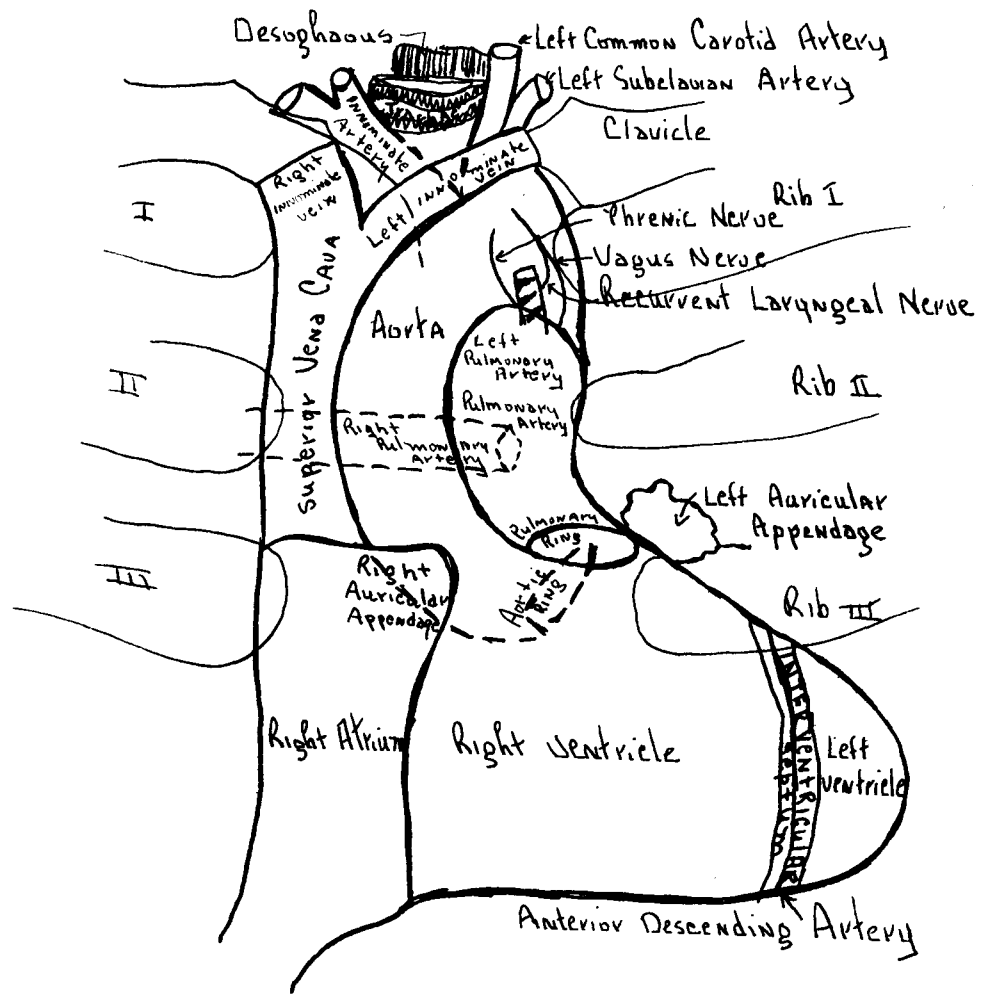 Desoghaous
Left Common Carotid Artery
Left Subclavian Artery
Clavicle
Innominate
Artery
Trachea
Right
Innominate
vein
Left Innominate
vein
I
Rib I
Phrenic Nerve
Vagus Nerve
Recurrent Laryngeal Nerve
Superior Vena Cava
Aorta
Left
Pulmonary
Artery
II
Rib II
Pulmonary
Artery
Right
Pulmonary
Artery
Left Auricular
Appendage
Pulmonary
Ring
III
Right
Auricular
Appendage
Aortic
Ring
Rib III
Right Atrium
Right Ventricle
Interventricular
Septum
Left
Ventricle
Anterior Descending Artery